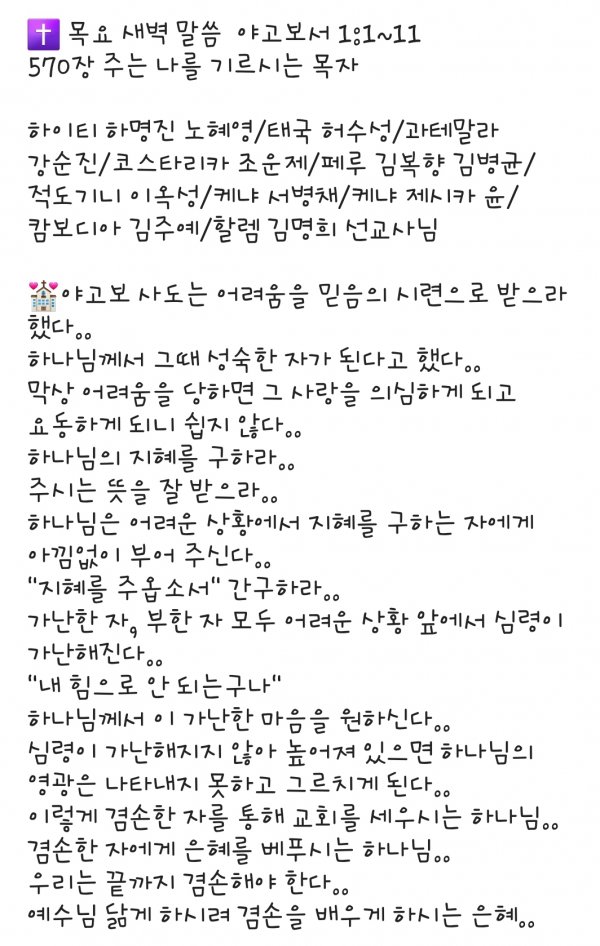 ✝️ 목요 새벽 말씀 야고보서 1:1~11
570장 주는 나를 기르시는 목자
하이티 하명진 노혜영/태국 허수성/과테말라
강순진/코스타리카 조운제/페루 김복향 김병균/
적도기니 이옥성/케냐 서병채/케냐 제시카 윤/
캄보디아 김주예/할렘 김명희 선교사님
💒야고보 사도는 어려움을 믿음의 시련으로 받으라
했다。。
하나님께서 그때 성숙한 자가 된다고 했다。。
막상 어려움을 당하면 그 사랑을 의심하게 되고
요동하게 되니 쉽지 않다。。
하나님의 지혜를 구하라。。
주시는 뜻을 잘 받으라。。
하나님은 어려운 상황에서 지혜를 구하는 자에게
아낌없이 부어 주신다。。
"지혜를 주옵소서" 간구하라。。
가난한 자, 부한 자 모두 어려운 상황 앞에서 심령이
가난해진다。。
"내 힘으로 안 되는구나"
하나님께서 이 가난한 마음을 원하신다。。
심령이 가난해지지 않아 높어져 있으면 하나님의
영광은 나타내지 못하고 그르치게 된다。。
이렇게 겸손한 자를 통해 교회를 세우시는 하나님。。
겸손한 자에게 은혜를 베푸시는 하나님。。
우리는 끝까지 겸손해야 한다。。
예수님 닮게 하시려 겸손을 배우게 하시는 은혜。。